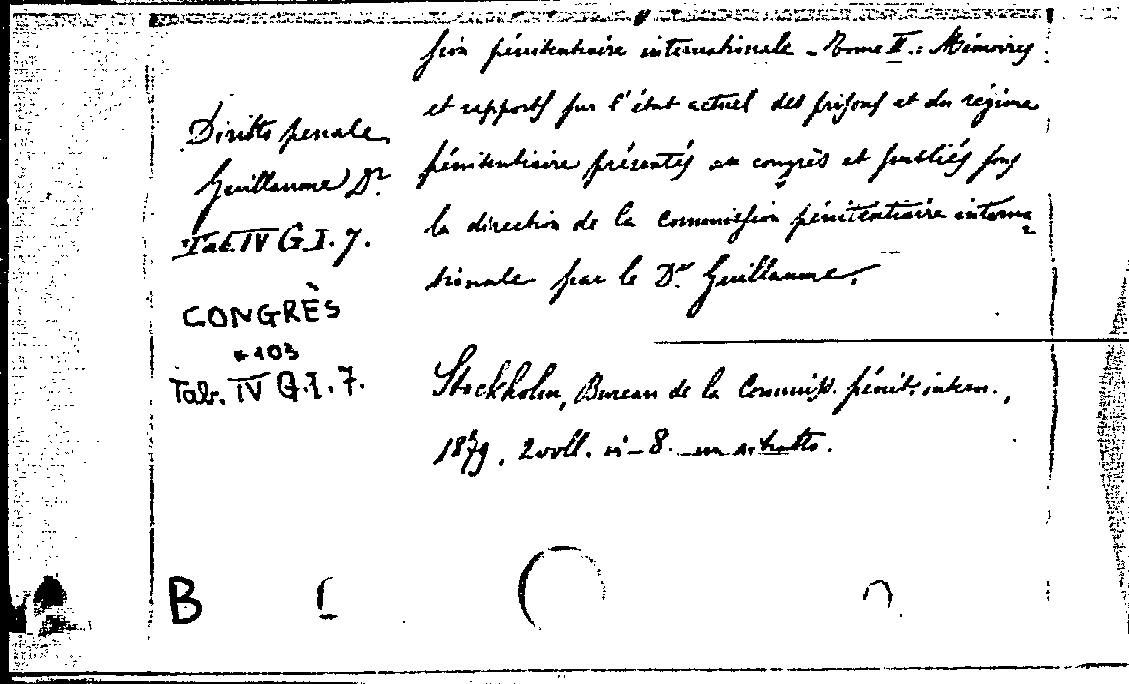 sion pénitentiaire internationale - Tome II: Mémoires
et rapports sur l'état actuel des prisons et du régime
pénitentiaire présentés au congrès et publiés sous
la direction de la Commission pénitentiaire interna
tionale par le Dr Guillaume.
Stockholm, Bureau de la Commiss. pénit. intern.,
1879. 2 voll. in-8. un ritratto.
Diritto penale
Guillaume Dr
Tab. IV G.I.7.
CONGRÈS
*103
Tab. IV G.I.7.
B